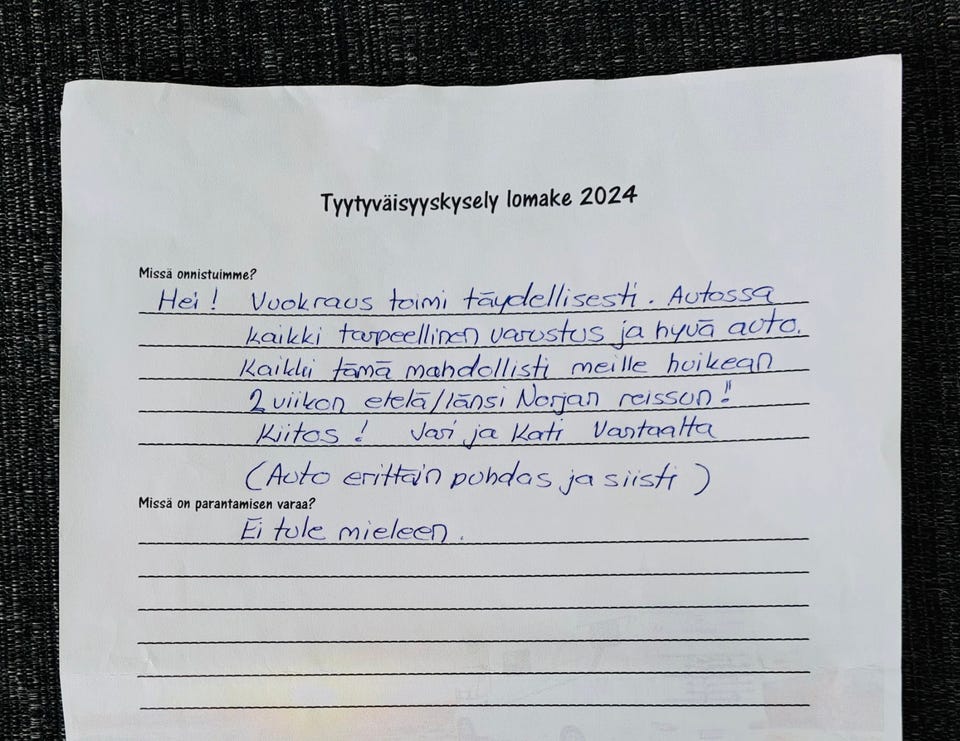 Tyytyväisyyskysely lomake 2024
Missä onnistuimme?
Hei! Vuokraus toimi täydellisesti. Autossa
kaikki tarpeellinen varustus ja hyvä auto.
Kaikki tämä mahdollisti meille huikean
2 viikon etelä/länsi Norjan reissun!!
Kiitos! Jari ja Kati Vantaalta
(Auto erittäin puhdas ja siisti)
Missä on parantamisen varaa?
Ei tule mieleen.